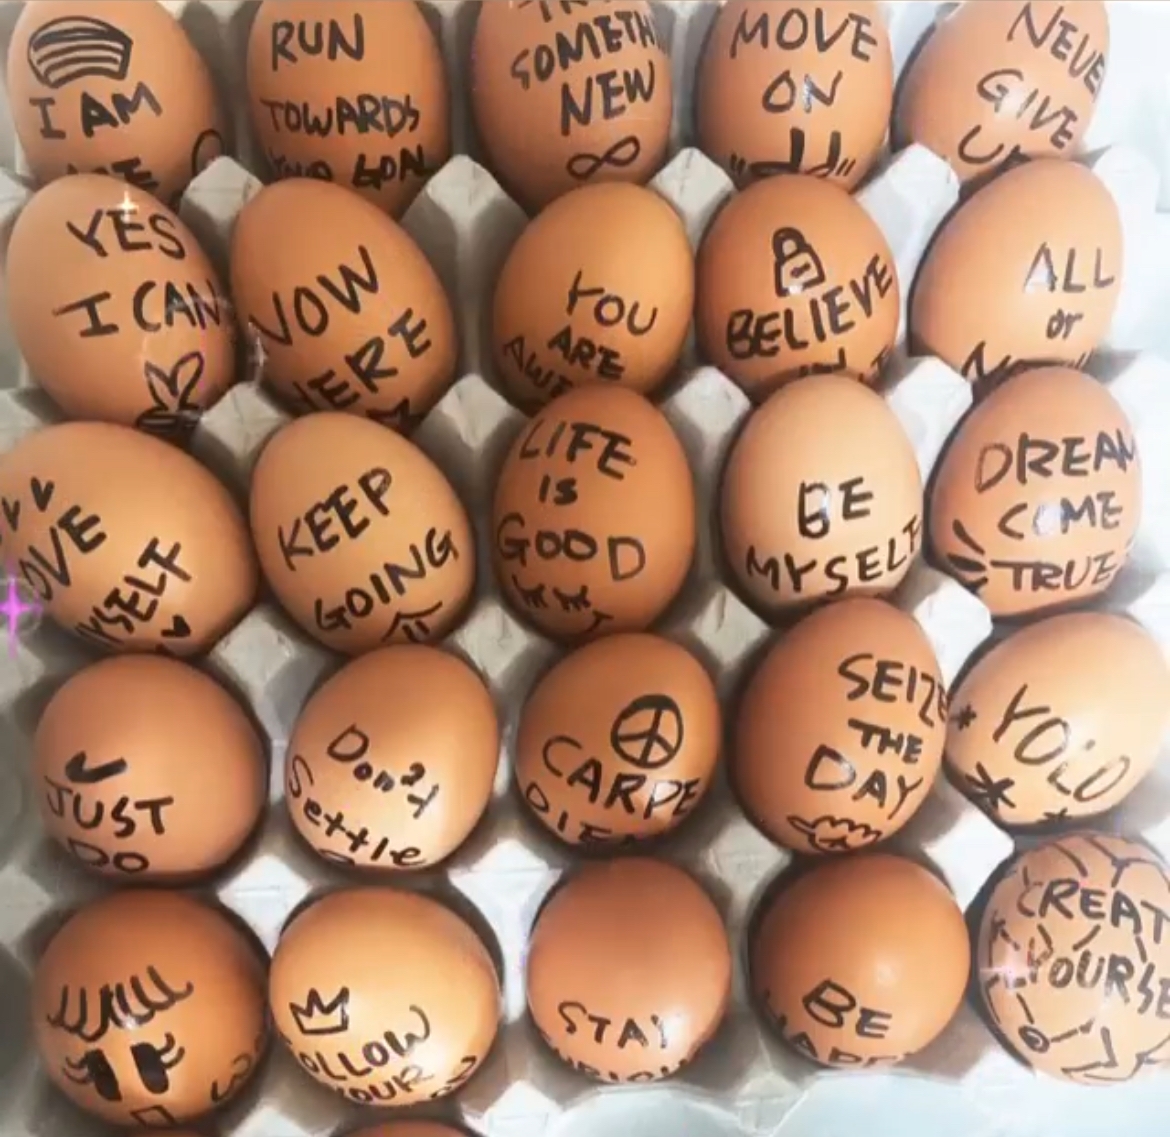 I AM
ME
RUN
TOWARDS
GOAL
TRY
SOMETH
NEW
MOVE
ON
NEVE
GIVE
UP
YES
I CAN
NOW
HERE
YOU
ARE
AWE
BELIEVE
IN
ALL
or
KEEP
GOING
LOVE
MYSELF
LIFE
IS
GOOD
BE
MYSELF
DREAM
COME
TRUE
JUST
DO
Don't
Settle
CARPE
DIEM
SEIZE
THE
DAY
YOLO
FOLLOW
YOUR
STAY
BE
HAPPY
CREAT
YOURSE